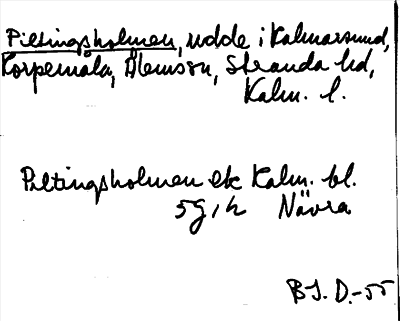 Piltingsholmen, udde i Kalmarsund,
Korpemåla, Ålemson, Stranda hd,
Kalm. l.
Piltingsholmen ek Kalm. bl.
5g, h Nävra
BJ. D.-55